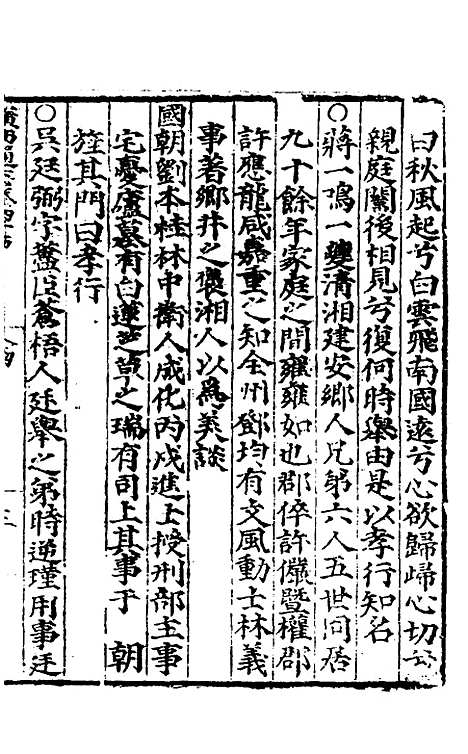 曰秋風起兮白雲飛南國遠兮心欲歸歸心切兮
親庭闊後相見兮復何時舉由是以孝行知名
○蔣一鳴一夔清湘建安鄉人兄弟六人五世同居
九十餘年家庭之間雍雍如也郡倅許儼暨權郡
許應龍咸嘉重之知全州鄧均有文風動士林義
事著鄉井之褒湘人以爲美談
國朝劉本桂林中衛人成化丙戍進士授刑部主事
宅憂廬墓有白蓮芝草之瑞有司上其事于　朝
旌其門曰孝行
○吳廷弼字藎臣蒼梧人廷舉之弟時逆瑾用事廷